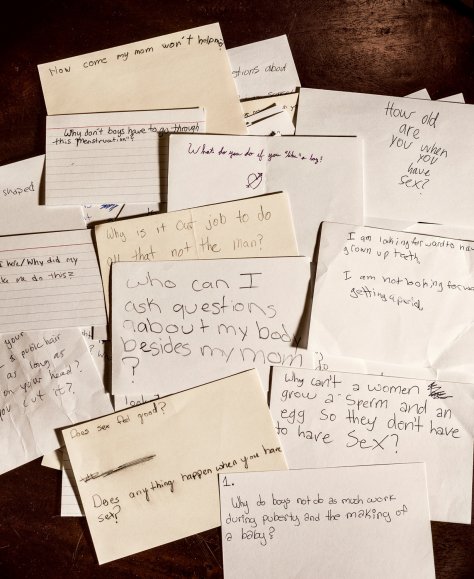 How come my mom won't
about
Why don't boys have to go through
this menstruation?
What do you do if you "like" a boy?
How old
are
you when
you
have
sex?
shaped
Why is it our job to do
all that not the man?
here/Why did my
me do this?
I am looking forward to
grown up teeth.
I am not looking
getting a period.
Who can I
ask questions
aabout my body
besides my mom
?
your
pubic hair
as long as
on your head?
you cut it?
Why can't a women
grow a sperm and an
egg so they don't have
to have Sex?
Does sex feel good?
Does anything happen when you have
sex?
1.
Why do boys not do as much work
during puberty and the making of
a baby?